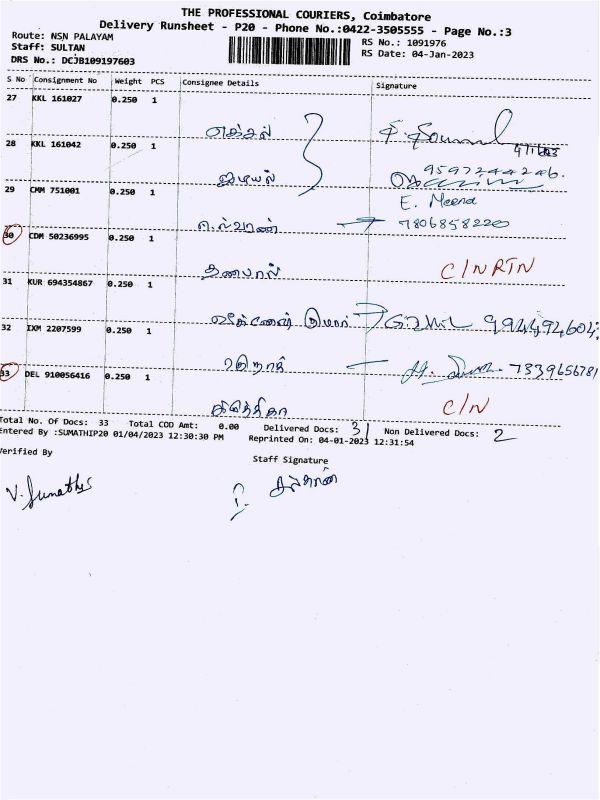 THE PROFESSIONAL COURIERS, Coimbatore
Delivery Runsheet - P20 - Phone No.:0422-3505555 - Page No.:3
Route: NSN PALAYAM
Staff: SULTAN
DRS No.: DCJB109197603
RS No.: 1091976
RS Date: 04-Jan-2023
S No Consignment No Weight PCS Consignee Details Signature
27 KKL 161027 0.250 1
28 KKL 161042 0.250 1
9597244246.
29 CMM 751001 0.250 1
E. Meena
7806858220
30 CDM 50236995 0.250 1
தனபால் C/N RTN
31 KUR 694354867 0.250 1
32 IXM 2207599 0.250 1
7339656781
33 DEL 910056416 0.250 1
C/N
Total No. Of Docs: 33 Total COD Amt: 0.00 Delivered Docs: 31 Non Delivered Docs: 2
Entered By :SUMATHIP20 01/04/2023 12:30:30 PM Reprinted On: 04-01-2023 12:31:54
Verified By
Staff Signature
V. Sumathi